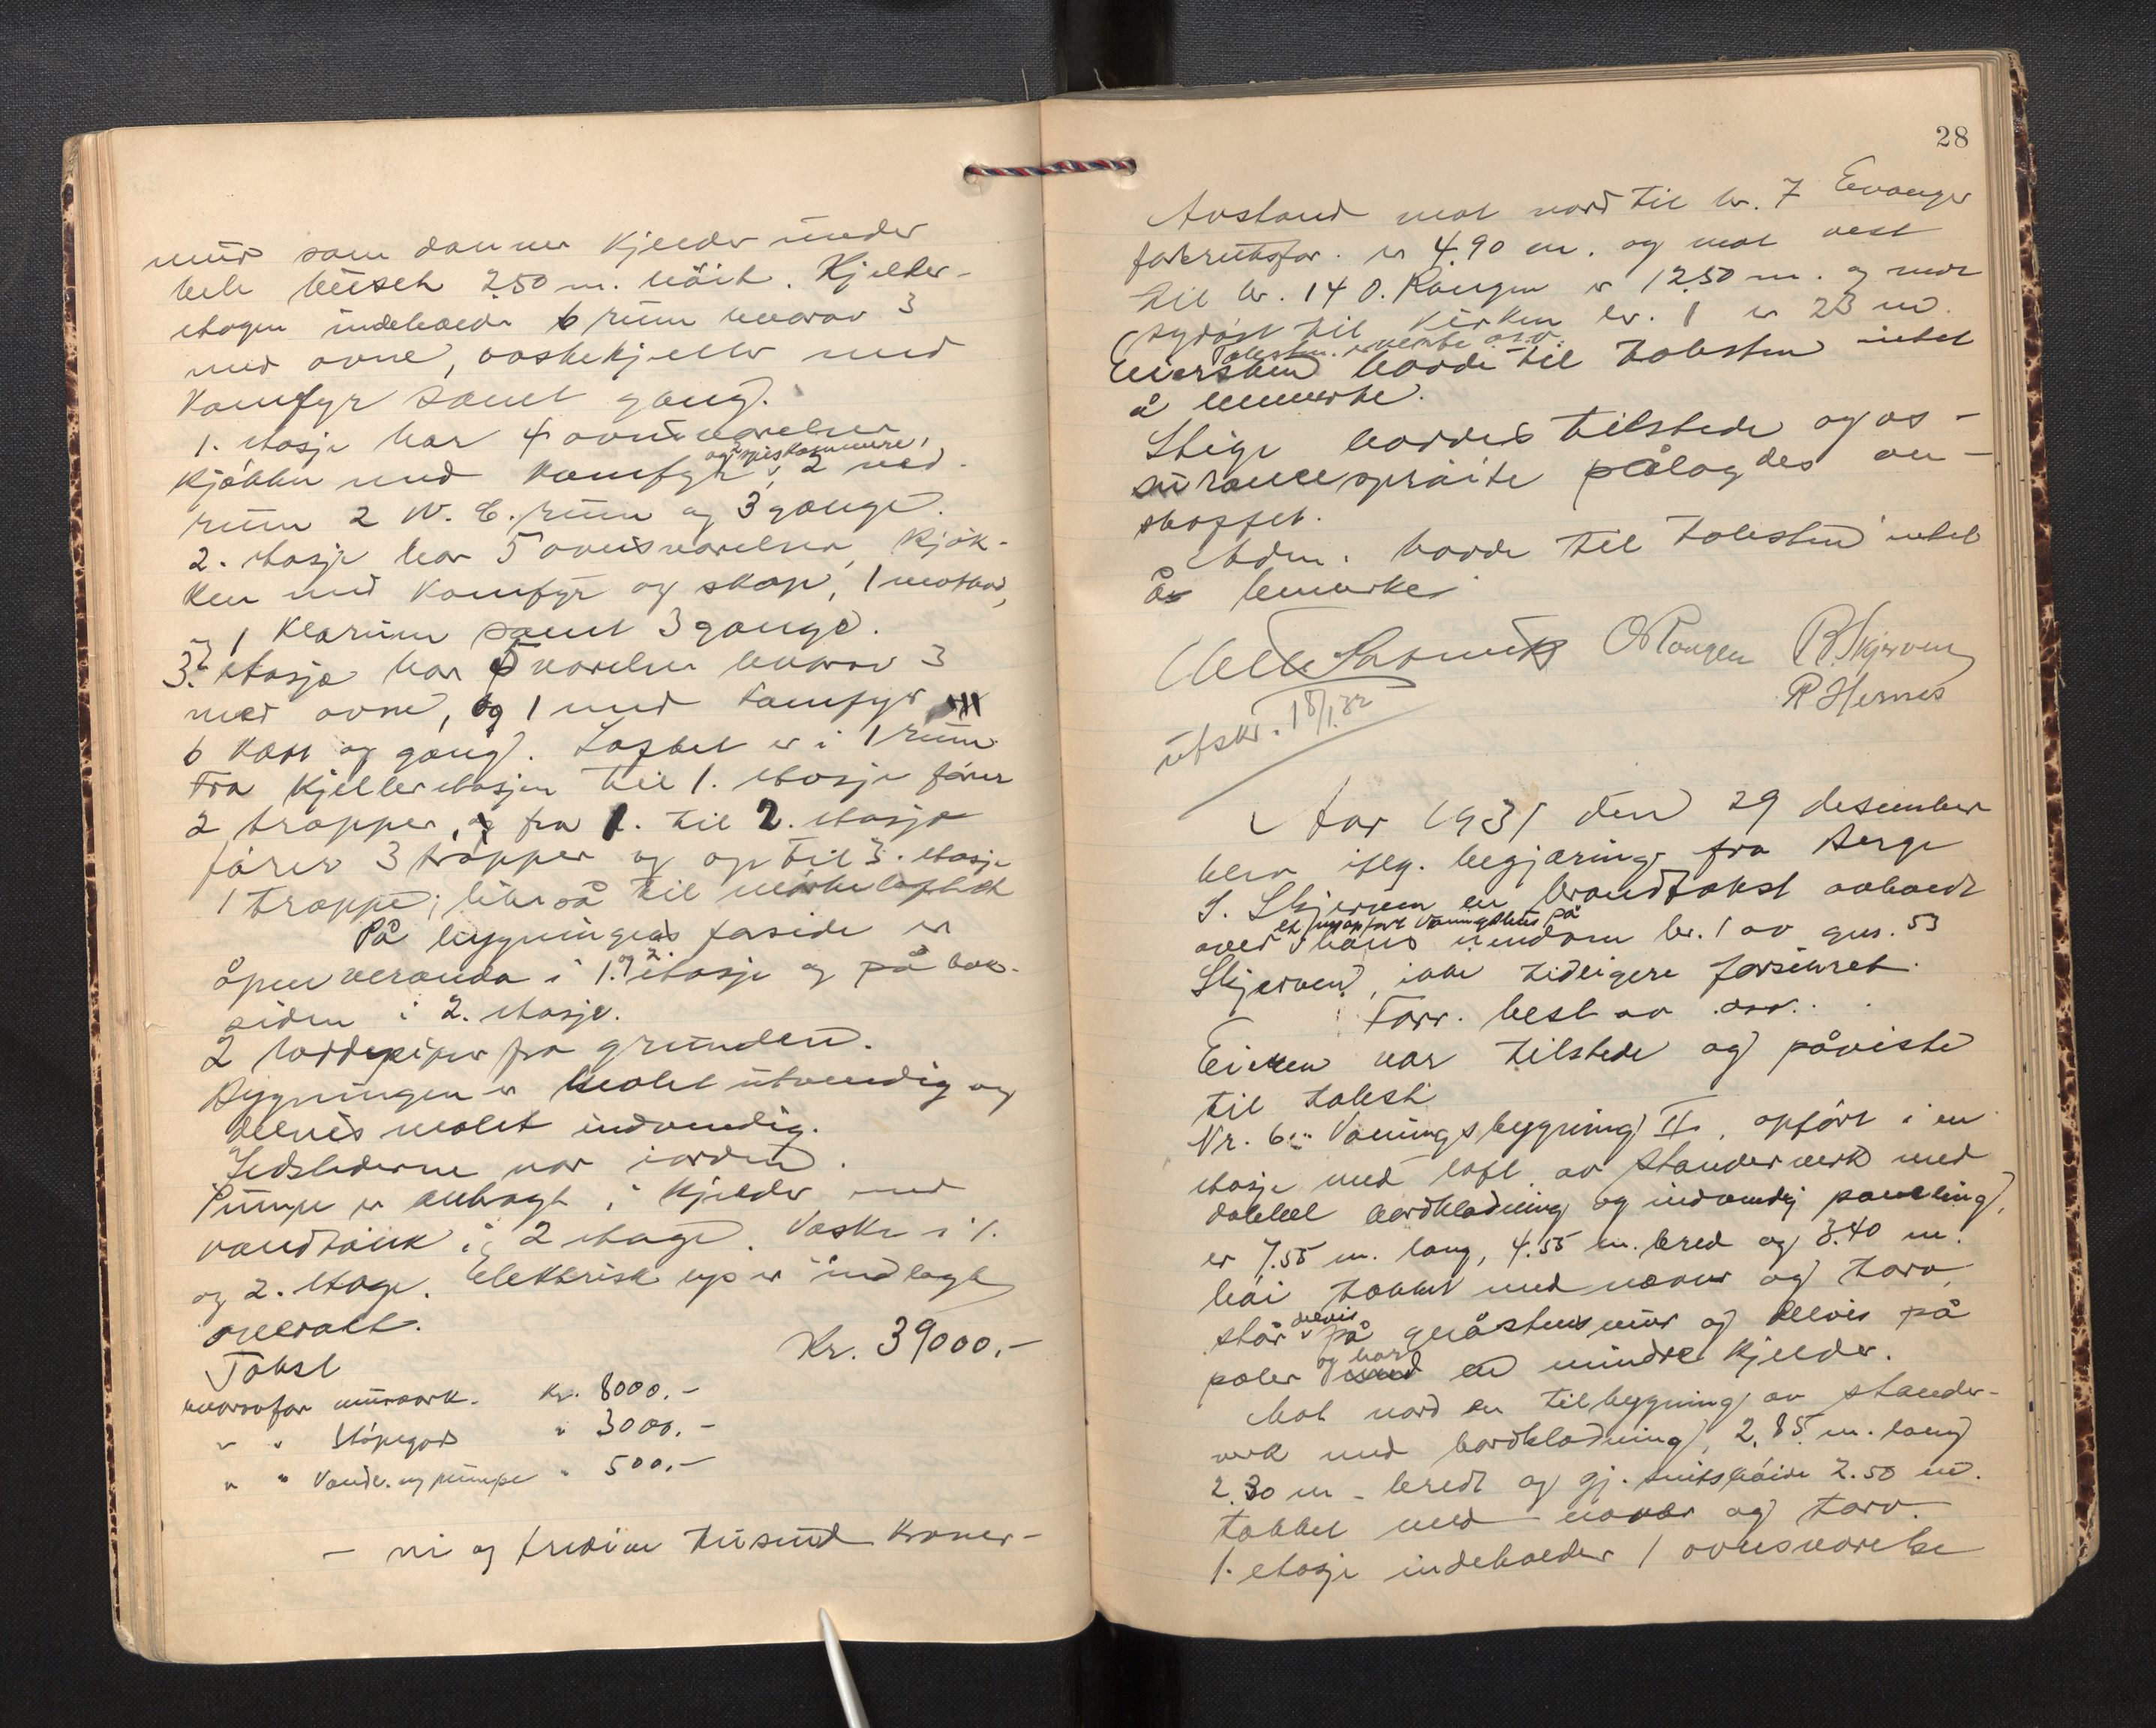 mur som danner kjelder under
hele huset 2.50 m. høit. Kjelder-
etagen indeholder 6 rum hvorav 3
med ovne, vaskekjeller med
komfyr samt gang.
1. etasje har 4 ovnsværelser,
kjøkken med komfyr og 2 spiskammere, 2 
rum 2 W. C. rum og 3 gange.
2. etasje har 5 ovnsværelser, kjøk-
ken med komfyr og skap, 1 matbod,
1 klærum samt 3 gange.
3. etasje har 5 værelser hvorav 3
med ovne, og 1 med komfyr
6 kott og gang. Loftet er i 1 rum
Fra kjelleretasjen til 1. etasje fører
2 trapper, og fra 1. til 2. etasje
fører 3 trapper og op til 3. etasje
1 trappe; likeså til mørkeloftet
På bygningens forside er
åpen veranda i 1. og 2. etasje og på bak-
siden i 2. etasje.
2 loddepiper fra grunden.
Bygningen er malet utvendig og
delvis malet indvendig.
Ildstederne var i orden.
Pumpe er anbragt i kjelder med
vandtank i 2 etage. Vaske i 1.
og 2. etage. Elektrisk lys er indlagt
overalt.
Takst Kr. 39000.-
hvorav for murverk. Kr. 8000.-
" " Støpegods " 3000.-
" " Vandl. og pumpe " 500.-
- ni og tredive tusend kroner -
28
Avstand mot nord til br. 7 Evanger
forbruksfor. er 4.90 m. og mot vest
til br. 14 O. Rongen er 12.50 m. og mot
sydøst til kirken br. 1 er 23 m.
Taksten o.s.v.
Eiersken havde til taksten intet
å bemerke.
Stige havdes tilstede og as-
surancesprøite pålagdes an-
skaffet.
Adm. havde til taksten intet
å bemerke.
O Rongen R. Skjerven
R Hernes
utskr. 18/1.32
Aar 1931 den 29 desember
blev iflg. begjæring fra Berge
S. Skjerven en brandtakst avholdt
over et nyopført vaaningshus på hans eiendom br. 1 av gnr. 53
Skjerven, ikke tidligere forsikret.
Forr. best. av osv.
Eieren var tilstede og påviste
til takst
Nr. 6. Vaaningsbygning II, opført i en
etasje med loft av stenderverk med
dobbel bordklædning og indvendig paneling,
er 7.55 m. lang, 4.55 m. bred og 3.40 m.
høi takket med næver og torv,
står delvis på gråstensmur og delvis på
påler og har en mindre kjelder.
Mot nord en tilbygning av stender-
verk med bordklædning, 2.85 m. lang
2.30 m. bred og gj. snitshøide 2.50 m.
takket med næver og torv.
1. etasje indeholder 1 ovnsværelse